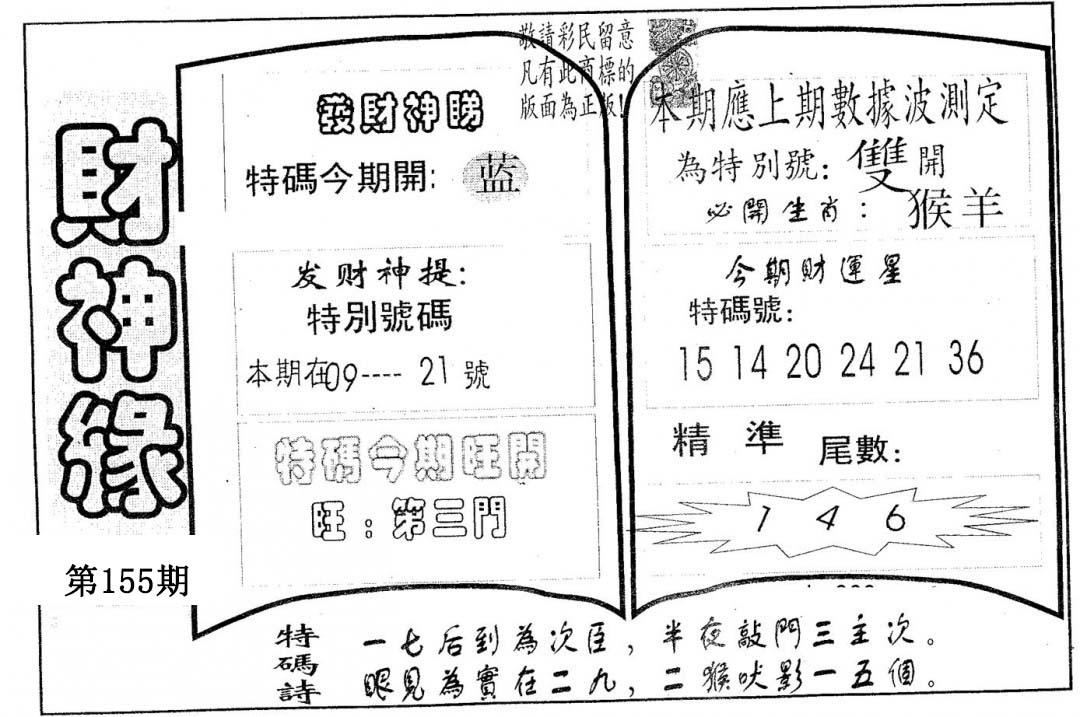 敬請彩民留意
凡有此商標的
版面為正版!
財神緣
第155期
發財神睇
特碼今期開: 蓝
发财神提:
特別號碼
本期在09----21號
特碼今期旺開
旺:第三門
本期應上期數據波測定
為特別號:雙開
必開生肖:猴羊
今期財運星
特碼號:
15 14 20 24 21 36
精準尾數:
1 4 6
特碼詩
一七后到為次臣,半夜敲門三主次。
眼見為實在二九,二猴吠影一五個。